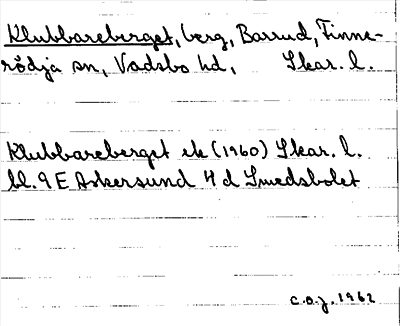 Klubbareberget, berg, Barrud, Finne-
rödja sn, Vadsbo hd, Skar. l.
Klubbareberget ek (1960) Skar. l.
bl. 9 E Askersund 4 d Smedsbolet
C.O.J. 1962